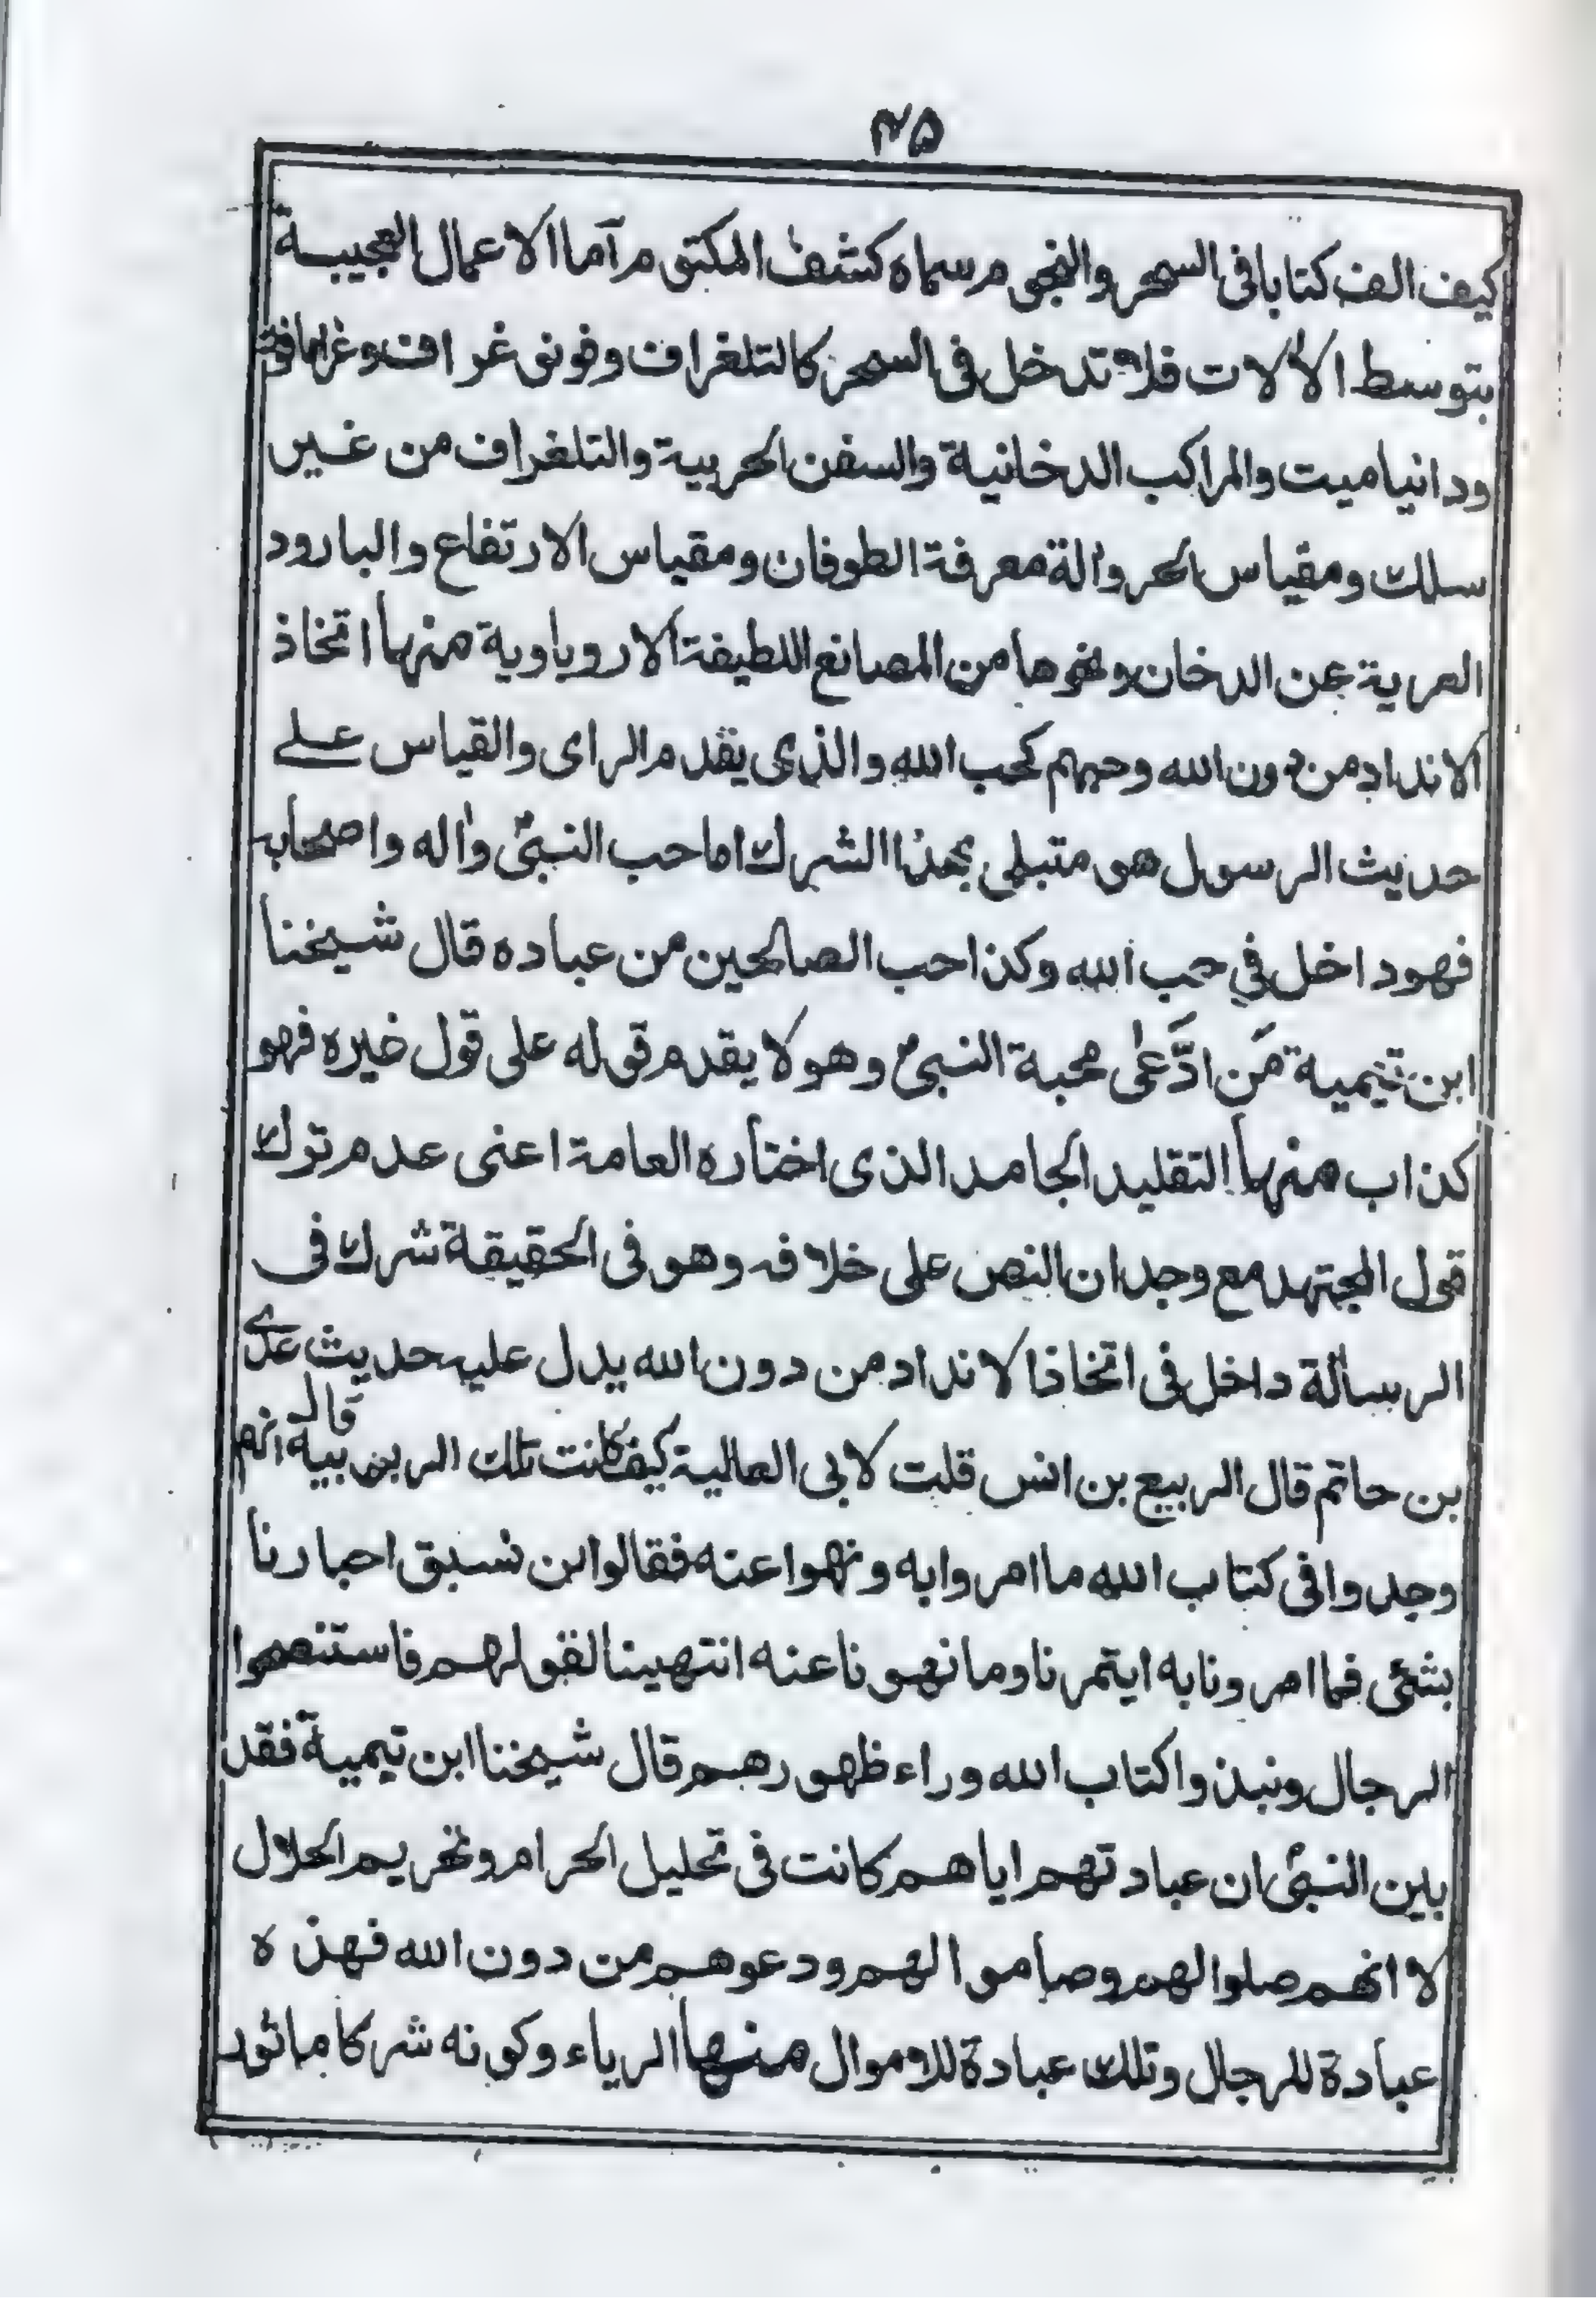 ٤٥
كيف الف كتابا فى السحر والنجوم سماه كشف المكتوم آما الاعمال العجيبة
بتوسط الالات فلا تدخل فى السحر كالتلغراف وفونوغراف وغرامافون
ودانياميت والمراكب الدخانية والسفن الحربية والتلغراف من غير
سلك ومقياس الحر واٰلة معرفة الطوفان ومقياس الارتفاع والبارود
العرية عن الدخان ونحوها من المصانع اللطيفة الاروپاوية منها اتخاذ
الانداد من دون الله وحبهم كحب الله والذى يقدم الراى والقياس علے
حديث الرسول هو متبلى بهذا الشرك اما حب النبىؐ واٰله واصحابه
فهو داخل في حب الله وكذا حب الصالحين من عباده قال شيخنا
ابن تيمية مَن ادَّعٰى محبة النبىؐ وهو لا يقدم قوله على قول غيره فهو
كذاب منها التقليد الجامد الذى اختاره العامة اعنى عدم ترك
قول المجتهد مع وجدان النص على خلافه وهو فى الحقيقة شرك فى
الرسالة داخل فى اتخاذ الانداد من دون الله يدل عليه حديث عدے
بن حاتم قال الربيع بن انس قلت لابى العالية كيف كانت تلك الربوبية قال انهم
وجدوا فى كتاب الله ما امروا به ونهوا عنه فقالوا لن نسبق احبارنا
بشئى فما امرونا به ايتمرنا وما نهونا عنه انتهينا لقولهم فاستنصحوا
الرجال ونبذوا كتاب الله وراء ظهورهم قال شيخنا ابن تيمية فقد
بين النبىؐ ان عبادتهم اياهم كانت فى تحليل الحرام وتحريم الحلال
لا انهم صلوا لهم وصاموا لهم ودعوهم من دون الله فهذه
عبادة للرجال وتلك عبادة للاموال منها الرياء وكونه شركا ماثور